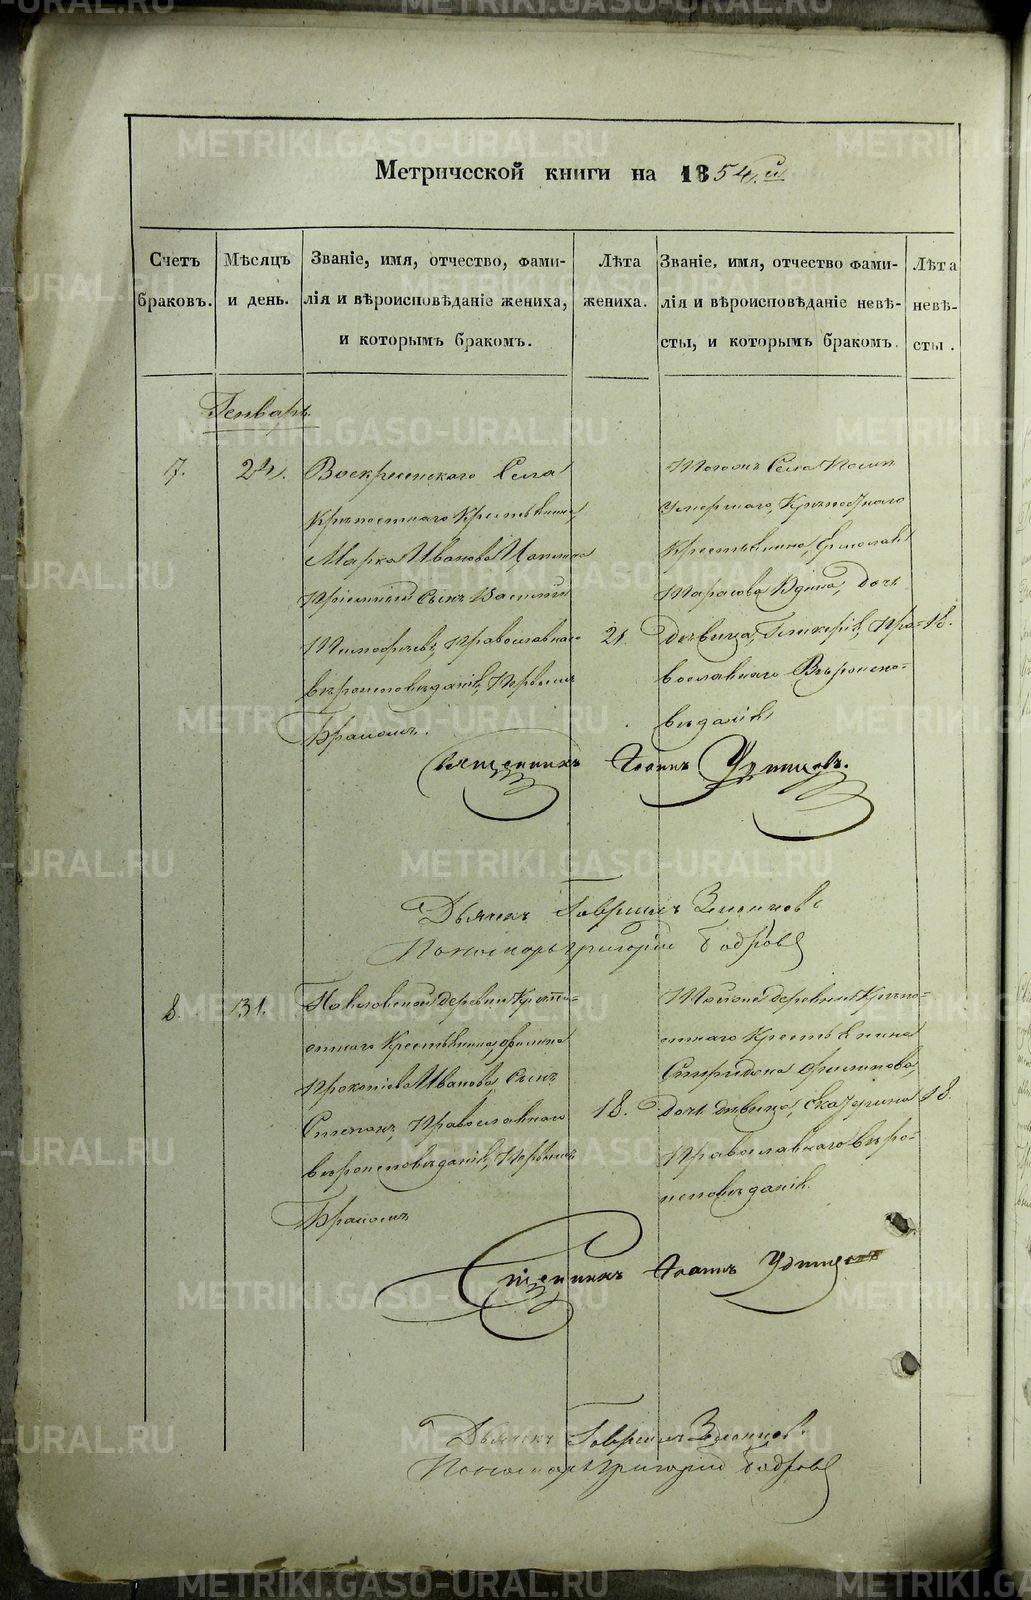 Метрической книги на 1854 й
Счетъ браковъ.
Мѣсяцъ и день.
Званіе, имя, отчество, фами-
лія и вѣроисповѣданіе жениха,
и которымъ бракомъ.
Лѣта жениха.
Званіе, имя, отчество фами-
лія и вѣроисповѣданіе невѣ-
сты, и которымъ бракомъ.
Лѣта невѣ-
сты.
Генварь
7.
24.
Воскресенскаго Села
Крѣпостнаго Крестьянина
Марка Иванова
Пріемный Сынъ Василій
Тимофѣевъ, Православнаго
вѣроисповѣданія, Первымъ
Бракомъ.
21.
Тогожъ Села
Умершаго, Крѣпостнаго
Крестьянина, Ермолая
Тарасова Дочь
Дѣвица, Гликерія, Пра-
вославнаго Вѣроиспо-
вѣданія
18.
Священникъ Іоаннъ Удинцовъ.
Дьячекъ Гавріилъ
Пономарь Григорій Бодровъ
8.
31.
Павловской деревни Крѣпо-
стнаго Крестьянина, Филипа
Прокопіева Иванова, Сынъ
Степанъ, Православнаго
вѣроисповѣданія, Первымъ
Бракомъ
18.
Тойже деревни Крѣпо-
стнаго Крестьянина
Спиридона Филипова,
Дочь дѣвица, Екатерина
Православнаго вѣро-
исповѣданія.
18.
Священникъ Іоаннъ Удинцовъ
Дьячекъ Гавріилъ
Пономарь Григорій Бодровъ
METRIKI.GASO-URAL.RU